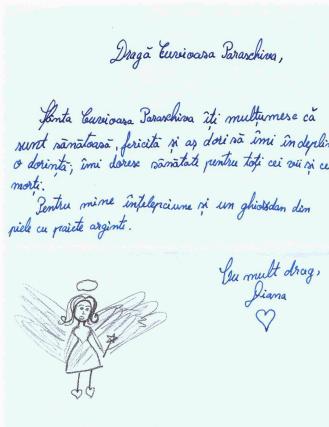 Dragă Cuvioasa Paraschiva,
Sfânta Cuvioasa Paraschiva îți mulțumesc că
sunt sănătoasă, fericită și aș dori să îmi îndeplin
o dorință, îmi doresc sănătate pentru toți cei vii și ce
morți.
Pentru mine înțelepciune și un ghiozdan din
piele cu paiete argintii.
Cu mult drag,
Diana